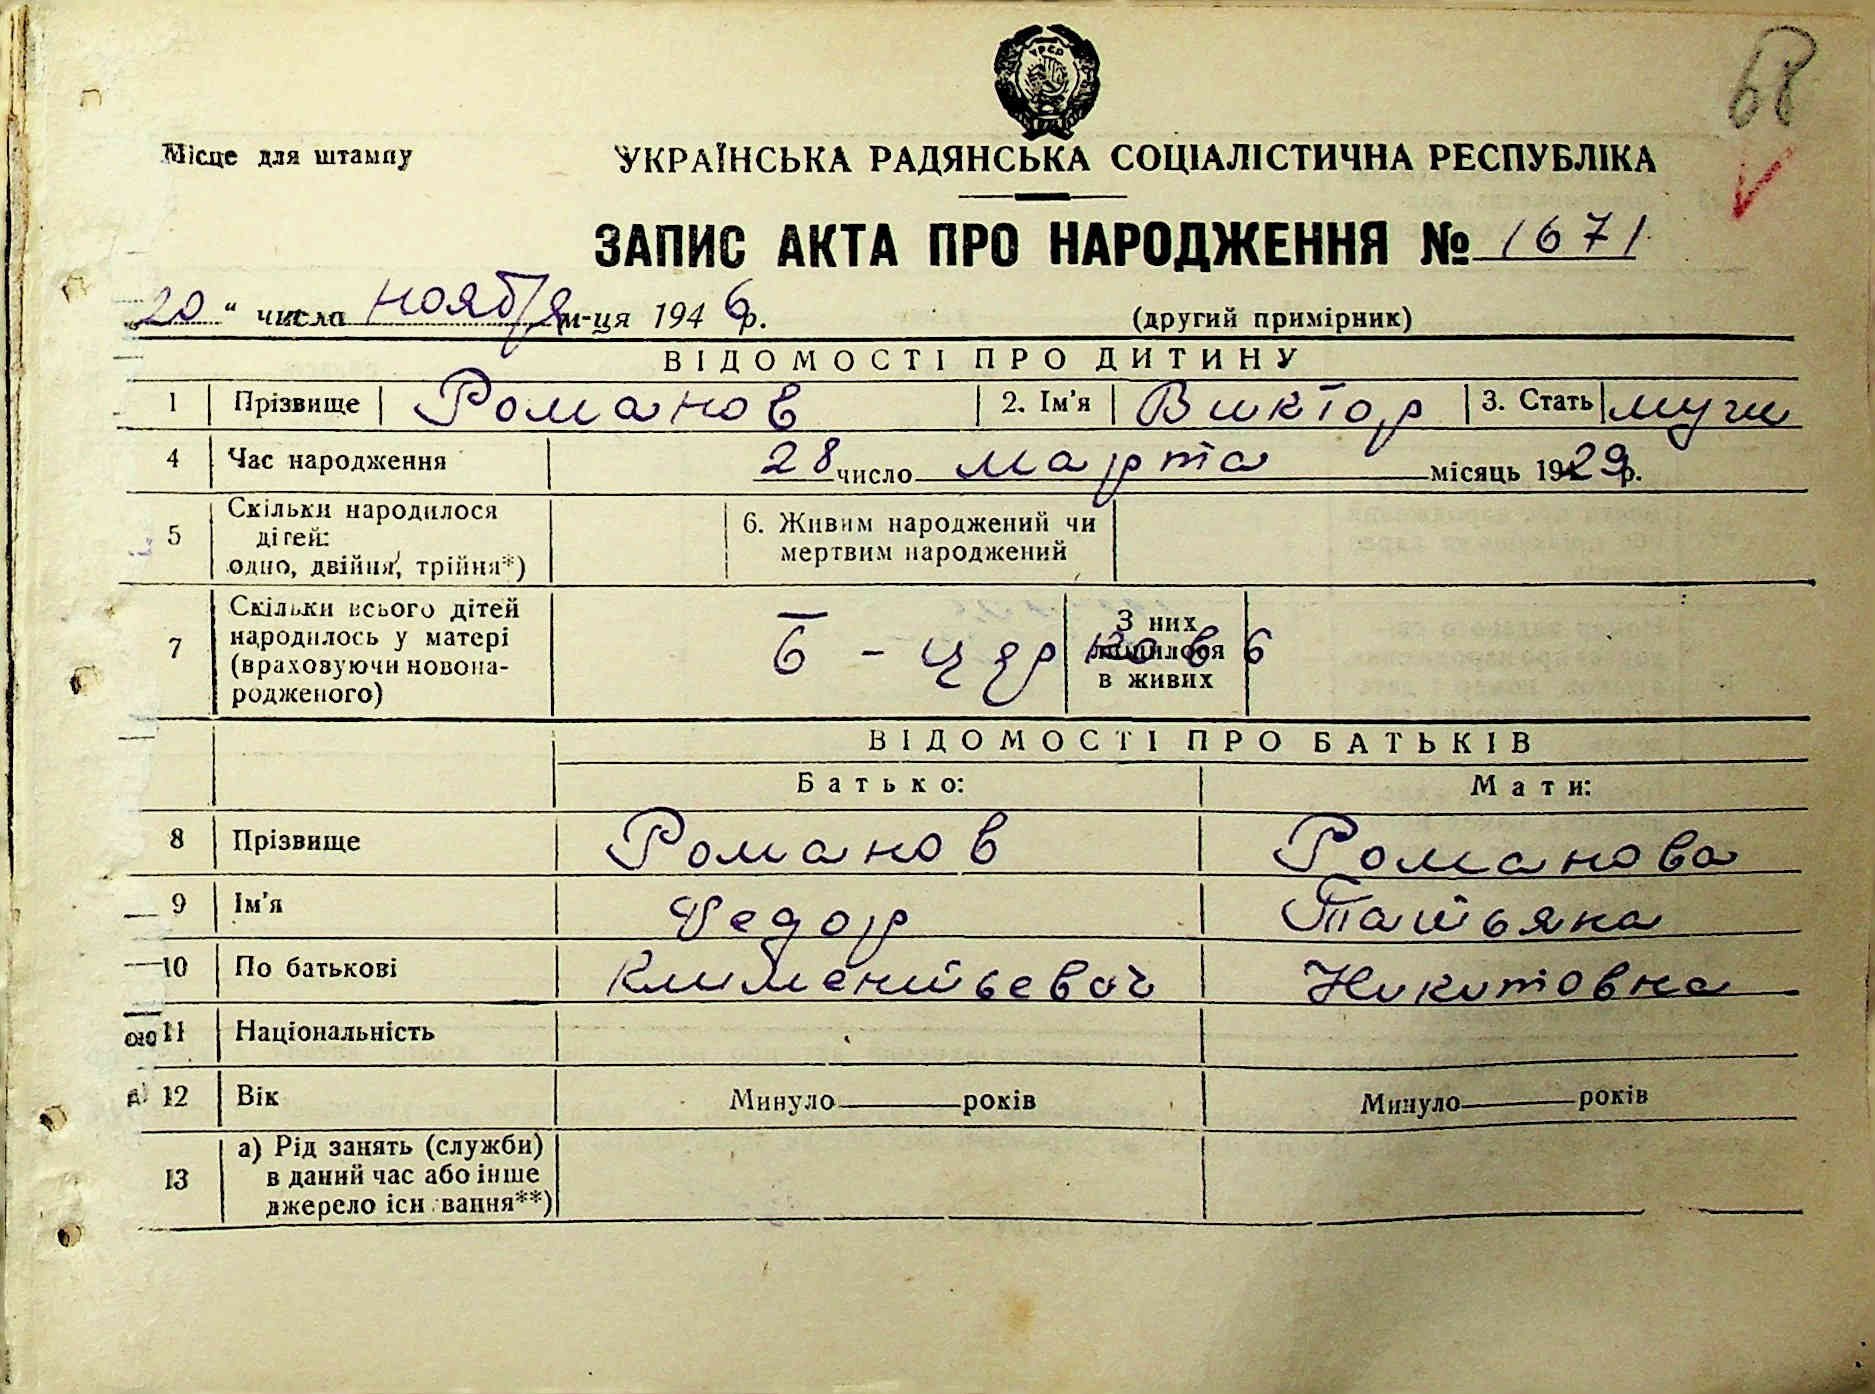 68
УРСР
Місце для штампу
УКРАЇНСЬКА РАДЯНСЬКА СОЦІАЛІСТИЧНА РЕСПУБЛІКА
ЗАПИС АКТА ПРО НАРОДЖЕННЯ № 1671
20 " числа ноября м-ця 1946 р. (другий примірник)
ВІДОМОСТІ ПРО ДИТИНУ
1 Прізвище Романов 2. Ім'я Виктор 3. Стать муж
4 Час народження 28 число марта місяць 1929 р.
5 Скільки народилося дітей: одно, двійня, трійня*) 6. Живим народжений чи мертвим народжений
7 Скільки всього дітей народилось у матері (враховуючи новонародженого) Б - Церковь З них лишилося в живих 6
ВІДОМОСТІ ПРО БАТЬКІВ
Батько: Мати:
8 Прізвище Романов Романова
9 Ім'я Федор Татьяна
10 По батькові Климентьевич Никитовна
11 Національність
12 Вік Минуло років Минуло років
13 а) Рід занять (служби) в даний час або інше джерело існування**)